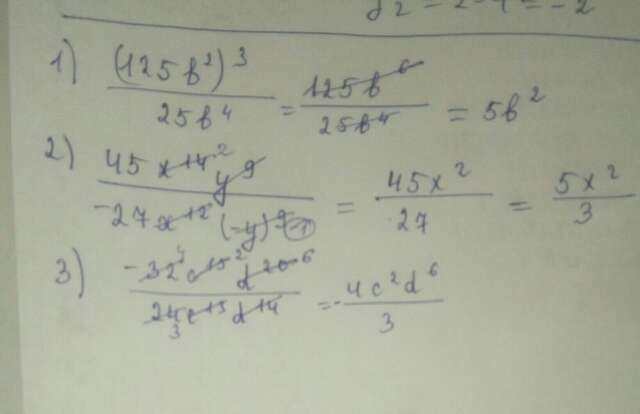 y2 = 2 - 4 = -2
1) (125b²)³ / 25b⁴ = 125b⁶ / 25b⁴ = 5b²
2) 45x¹⁴ ² y⁹ / -27x¹² (-y)⁹ = 45x² / 27 = 5x² / 3
3) -32 ⁴ c¹⁵ ² d²⁰ ⁶ / 24 ₃ c¹³ d¹⁴ = -4c²d⁶ / 3